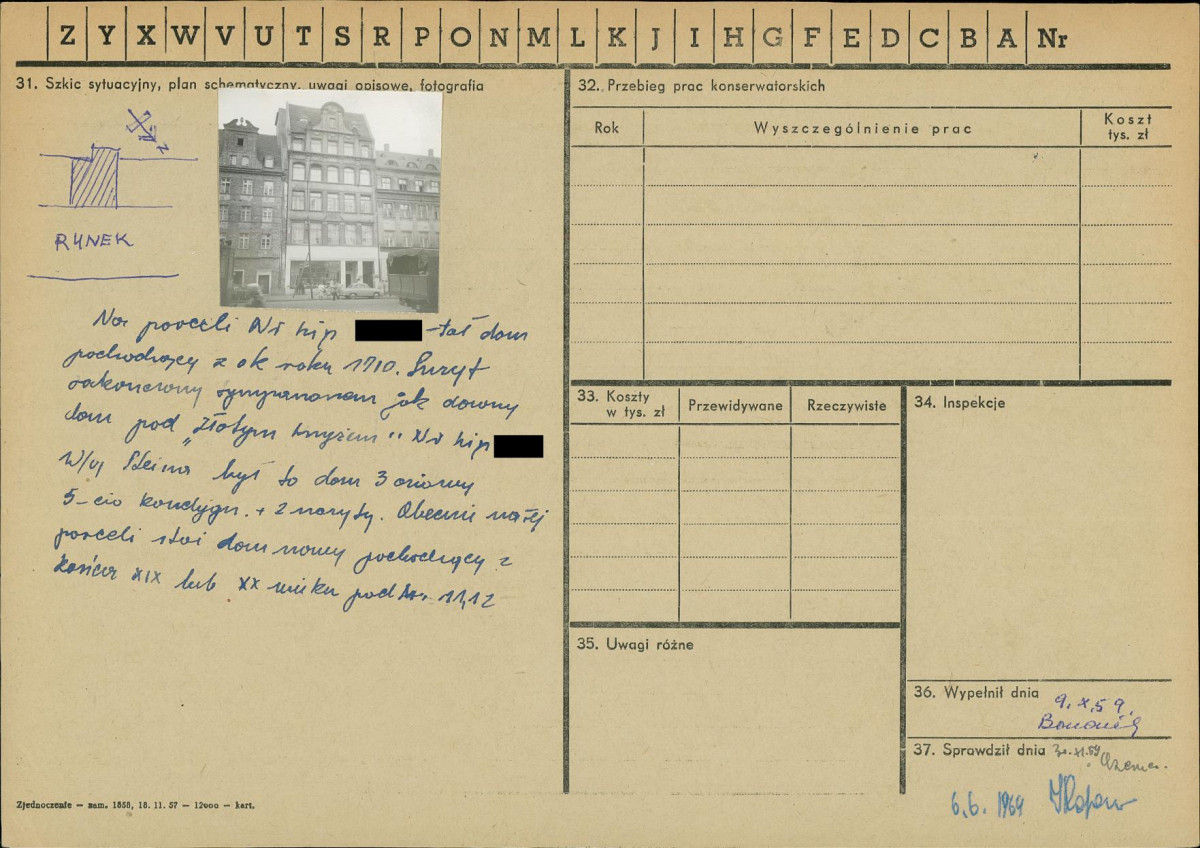 Z Y X W V U T S R P O N M L K J I H G F E D C B A Nr
31. Szkic sytuacyjny, plan schematyczny, uwagi opisowe, fotografia
N
RYNEK
Na parceli Nr hip stał dom
pochodzący z ok roku 1710. Szczyt
zakończony tympanonem jak dawny
dom pod „Złotym " Nr hip
W/g Steina był to dom 3 osiowy
5-cio kondygn. + 2 Obecnie na tej
parceli stoi dom nowy pochodzący z
końca XIX lub XX wieku pod Nr. 11,12
Zjednoczenie — zam. 1858, 18. 11. 57 — 12000 — kart.
32. Przebieg prac konserwatorskich
Rok
Wyszczególnienie prac
Koszt
tys. zł
33. Koszty
w tys. zł
Przewidywane
Rzeczywiste
34. Inspekcje
35. Uwagi różne
36. Wypełnił dnia
9.X.59.
37. Sprawdził dnia
6.6. 1964